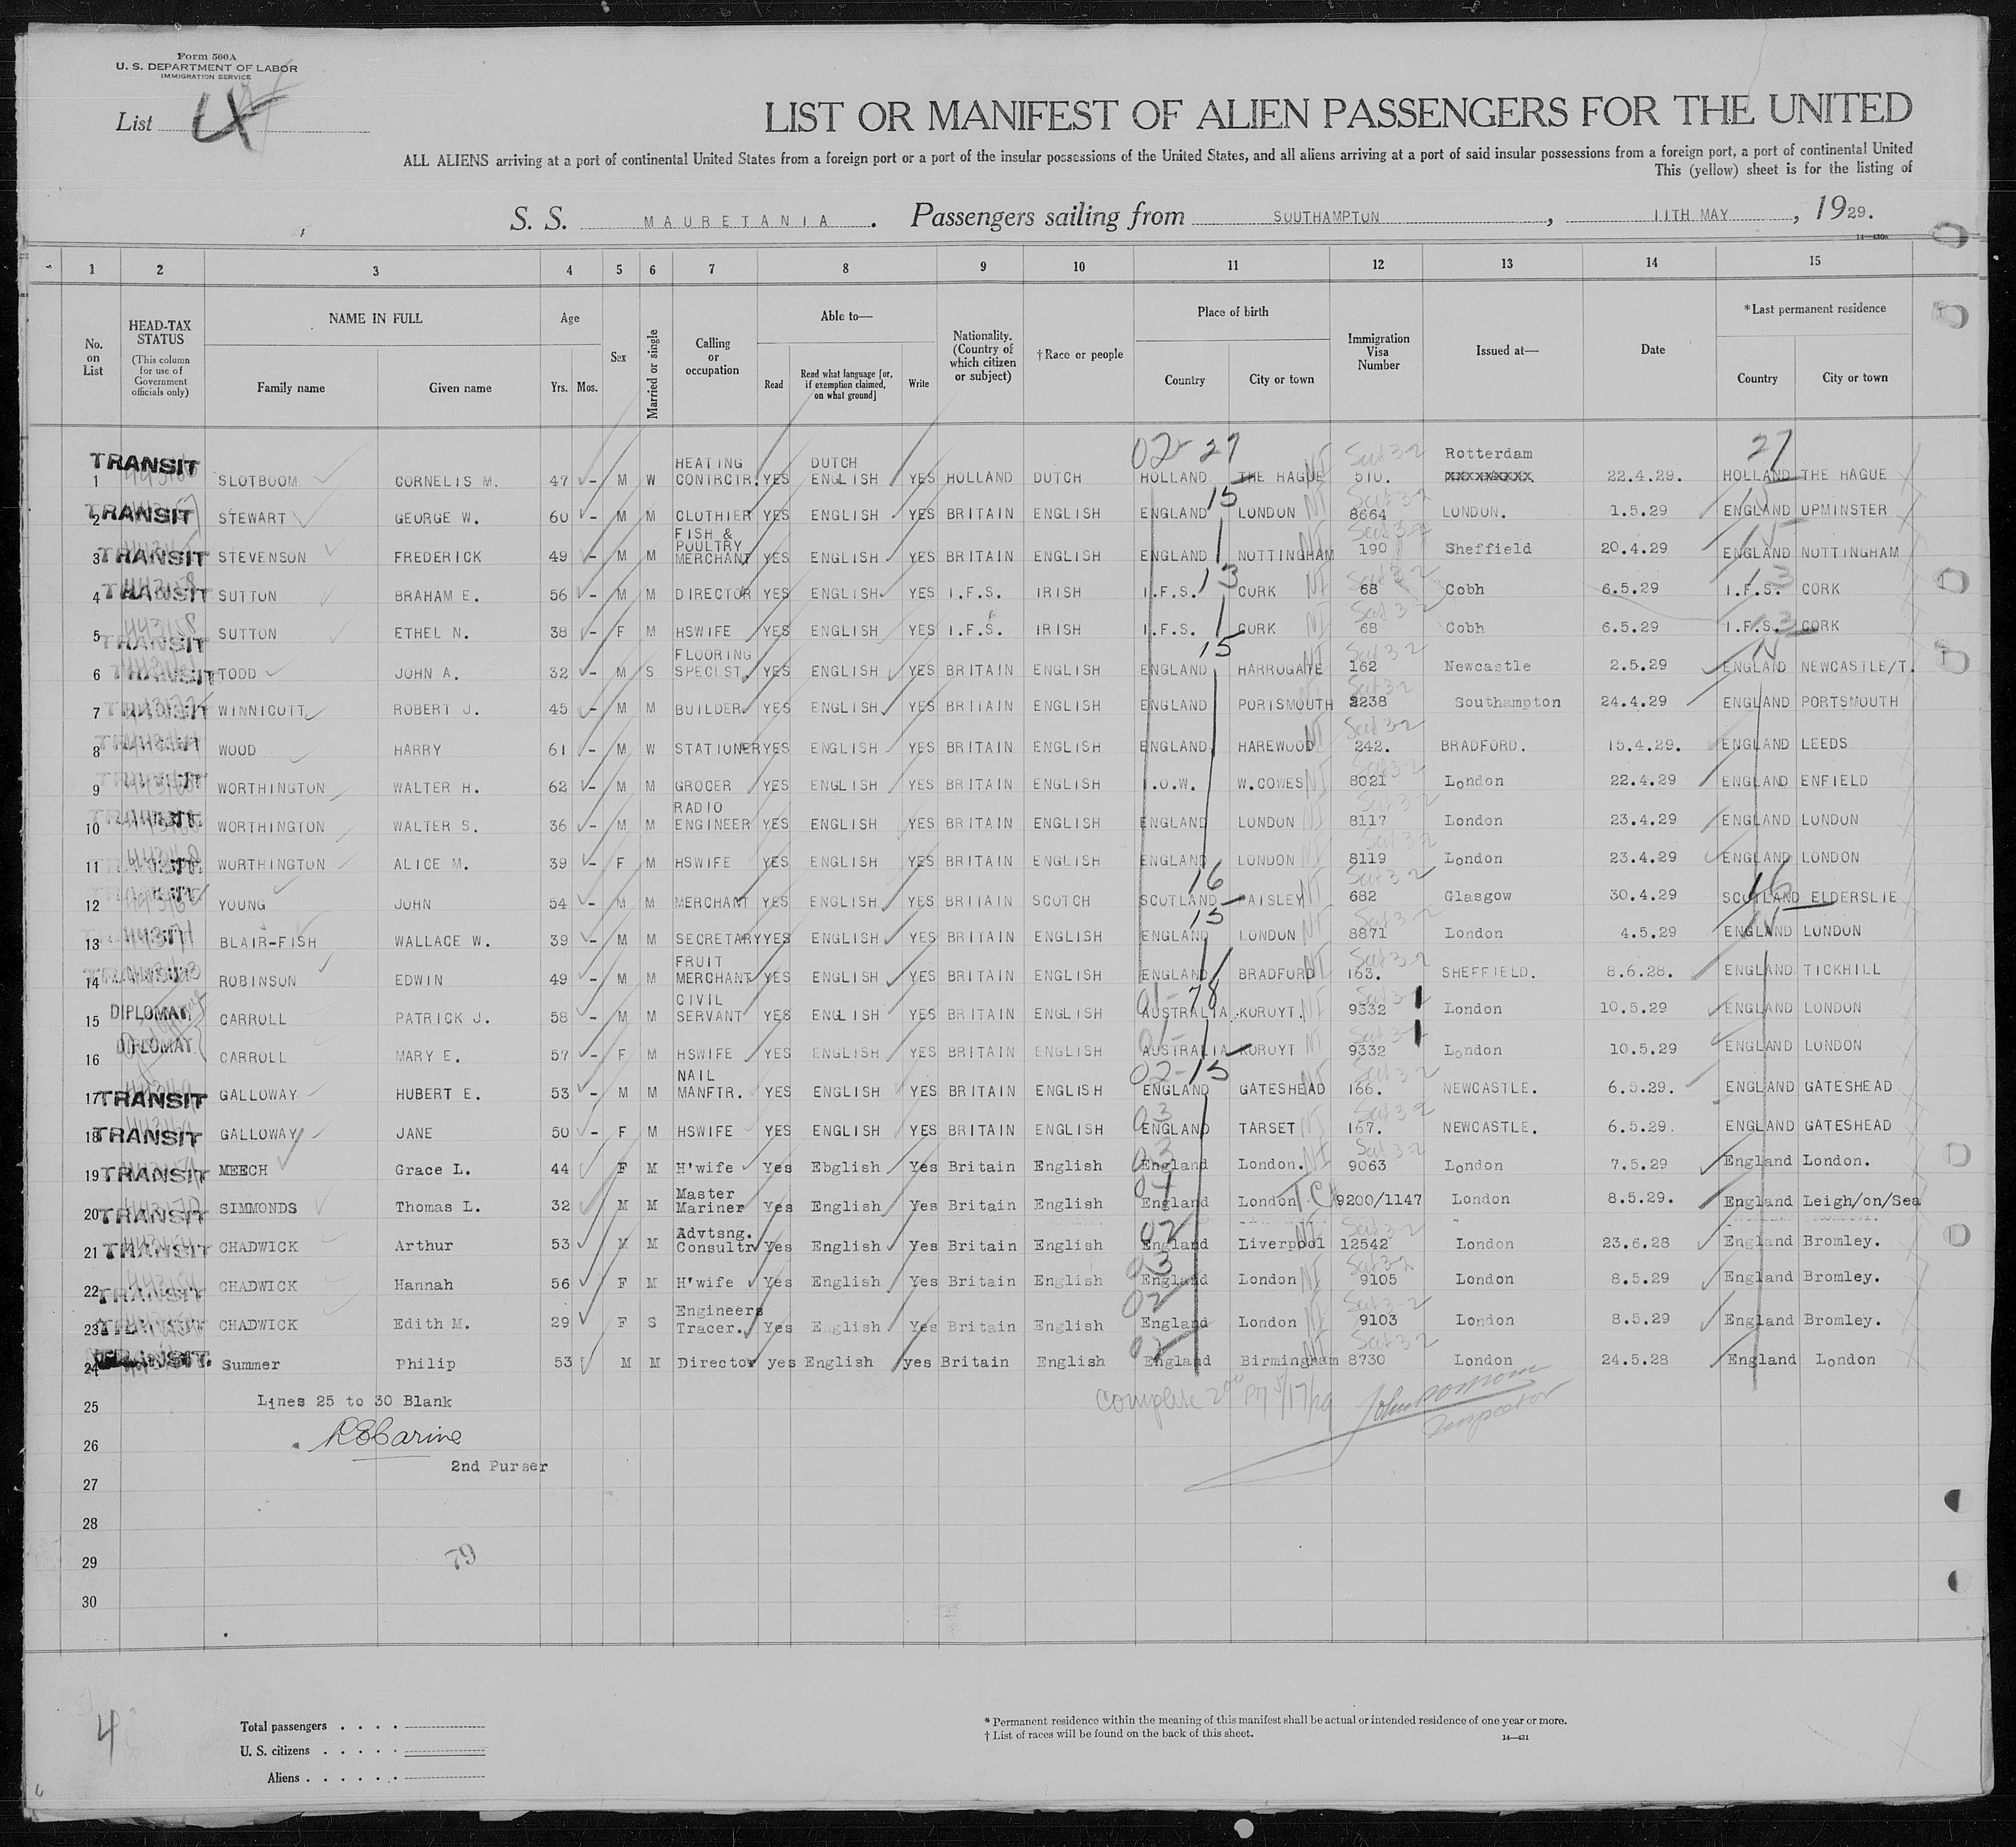 Form 500A
U. S. DEPARTMENT OF LABOR
IMMIGRATION SERVICE
List 4
LIST OR MANIFEST OF ALIEN PASSENGERS FOR THE UNITED
ALL ALIENS arriving at a port of continental United States from a foreign port or a port of the insular possessions of the United States, and all aliens arriving at a port of said insular possessions from a foreign port, a port of continental United
This (yellow) sheet is for the listing of
S. S. MAURETANIA. Passengers sailing from SOUTHAMPTON, 11TH MAY, 1929.
14—430a
1 2 3 4 5 6 7 8 9 10 11 12 13 14 15
No. on List
HEAD-TAX STATUS (This column for use of Government officials only)
NAME IN FULL
Family name Given name
Age
Yrs. Mos.
Sex
Married or single
Calling or occupation
Able to—
Read
Read what language [or, if exemption claimed, on what ground]
Write
Nationality. (Country of which citizen or subject)
†Race or people
Place of birth
Country City or town
Immigration Visa Number
Issued at—
Date
*Last permanent residence
Country City or town
02 27 27
1 TRANSIT SLOTBOOM CORNELIS M. 47 - M W HEATING CONTRCTR. YES DUTCH ENGLISH YES HOLLAND DUTCH HOLLAND THE HAGUE 510. Rotterdam XXXXXXXXXX 22.4.29. HOLLAND THE HAGUE
2 TRANSIT STEWART GEORGE W. 60 - M M CLOTHIER YES ENGLISH YES BRITAIN ENGLISH ENGLAND 15 LONDON 8664 LONDON. 1.5.29 ENGLAND UPMINSTER
3 TRANSIT STEVENSON FREDERICK 49 - M M FISH & POULTRY MERCHANT YES ENGLISH YES BRITAIN ENGLISH ENGLAND NOTTINGHAM 190 Sheffield 20.4.29 ENGLAND NOTTINGHAM
4 TRANSIT SUTTON BRAHAM E. 56 - M M DIRECTOR YES ENGLISH YES I.F.S. IRISH I.F.S. 13 CORK 68 Cobh 6.5.29 I.F.S. CORK
5 TRANSIT SUTTON ETHEL N. 38 - F M HSWIFE YES ENGLISH YES I.F.S. IRISH I.F.S. CORK 68 Cobh 6.5.29 I.F.S. CORK
6 TRANSIT TODD JOHN A. 32 - M S FLOORING SPECLST. YES ENGLISH YES BRITAIN ENGLISH ENGLAND 15 HARROGATE 162 Newcastle 2.5.29 ENGLAND NEWCASTLE/T.
7 TRANSIT WINNICOTT ROBERT J. 45 - M M BUILDER. YES ENGLISH YES BRITAIN ENGLISH ENGLAND PORTSMOUTH 2238 Southampton 24.4.29 ENGLAND PORTSMOUTH
8 TRANSIT WOOD HARRY 61 - M W STATIONER YES ENGLISH YES BRITAIN ENGLISH ENGLAND HAREWOOD 242. BRADFORD. 15.4.29. ENGLAND LEEDS
9 WORTHINGTON WALTER H. 62 - M M GROCER YES ENGLISH YES BRITAIN ENGLISH I.O.W. W.COWES 8021 London 22.4.29 ENGLAND ENFIELD
10 WORTHINGTON WALTER S. 36 - M M RADIO ENGINEER YES ENGLISH YES BRITAIN ENGLISH ENGLAND LONDON 8117 London 23.4.29 ENGLAND LONDON
11 WORTHINGTON ALICE M. 39 - F M HSWIFE YES ENGLISH YES BRITAIN ENGLISH ENGLAND LONDON 8119 London 23.4.29 ENGLAND LONDON
12 YOUNG JOHN 54 - M M MERCHANT YES ENGLISH YES BRITAIN SCOTCH SCOTLAND 16 PAISLEY 682 Glasgow 30.4.29 SCOTLAND 16 ELDERSLIE
13 BLAIR-FISH WALLACE W. 39 - M M SECRETARY YES ENGLISH YES BRITAIN ENGLISH ENGLAND 15 LONDON 8871 London 4.5.29 ENGLAND LONDON
14 ROBINSON EDWIN 49 - M M FRUIT MERCHANT YES ENGLISH YES BRITAIN ENGLISH ENGLAND BRADFORD 163. SHEFFIELD. 8.6.28. ENGLAND TICKHILL
15 DIPLOMAT CARROLL PATRICK J. 58 - M M CIVIL SERVANT YES ENGLISH YES BRITAIN ENGLISH 01-78 AUSTRALIA KOROYT. 9332 London 10.5.29 ENGLAND LONDON
16 DIPLOMAT CARROLL MARY E. 57 - F M HSWIFE YES ENGLISH YES BRITAIN ENGLISH AUSTRALIA KOROYT 9332 London 10.5.29 ENGLAND LONDON
17 TRANSIT GALLOWAY HUBERT E. 53 - M M NAIL MANFTR. YES ENGLISH YES BRITAIN ENGLISH 02-15 ENGLAND GATESHEAD 166. NEWCASTLE. 6.5.29. ENGLAND GATESHEAD
18 TRANSIT GALLOWAY JANE 50 - F M HSWIFE YES ENGLISH YES BRITAIN ENGLISH 03 ENGLAND TARSET 167. NEWCASTLE. 6.5.29. ENGLAND GATESHEAD
19 TRANSIT MEECH Grace L. 44 F M H'wife Yes Ebglish Yes Britain English 03 England London. 9063 London 7.5.29 England London.
20 TRANSIT SIMMONDS Thomas L. 32 M M Master Mariner Yes English Yes Britain English England London 9200/1147 London 8.5.29. England Leigh/on/Sea
21 TRANSIT CHADWICK Arthur 53 M M Advtsng. Consultr Yes English Yes Britain English 02 England Liverpool 12542 London 23.6.28 England Bromley.
22 TRANSIT CHADWICK Hannah 56 F M H'wife Yes English Yes Britain English 03 England London 9105 London 8.5.29 England Bromley.
23 CHADWICK Edith M. 29 F S Engineers Tracer. Yes English Yes Britain English 02 England London 9103 London 8.5.29 England Bromley.
24 TRANSIT. Summer Philip 53 M M Director yes English yes Britain English 02 England Birmingham 8730 London 24.5.28 England London
25 Lines 25 to 30 Blank Complete 200 PM 5/17/29
Inspector
26
2nd Purser
27
28
29 79
30
4
Total passengers
U. S. citizens
Aliens
* Permanent residence within the meaning of this manifest shall be actual or intended residence of one year or more.
† List of races will be found on the back of this sheet.
14—431